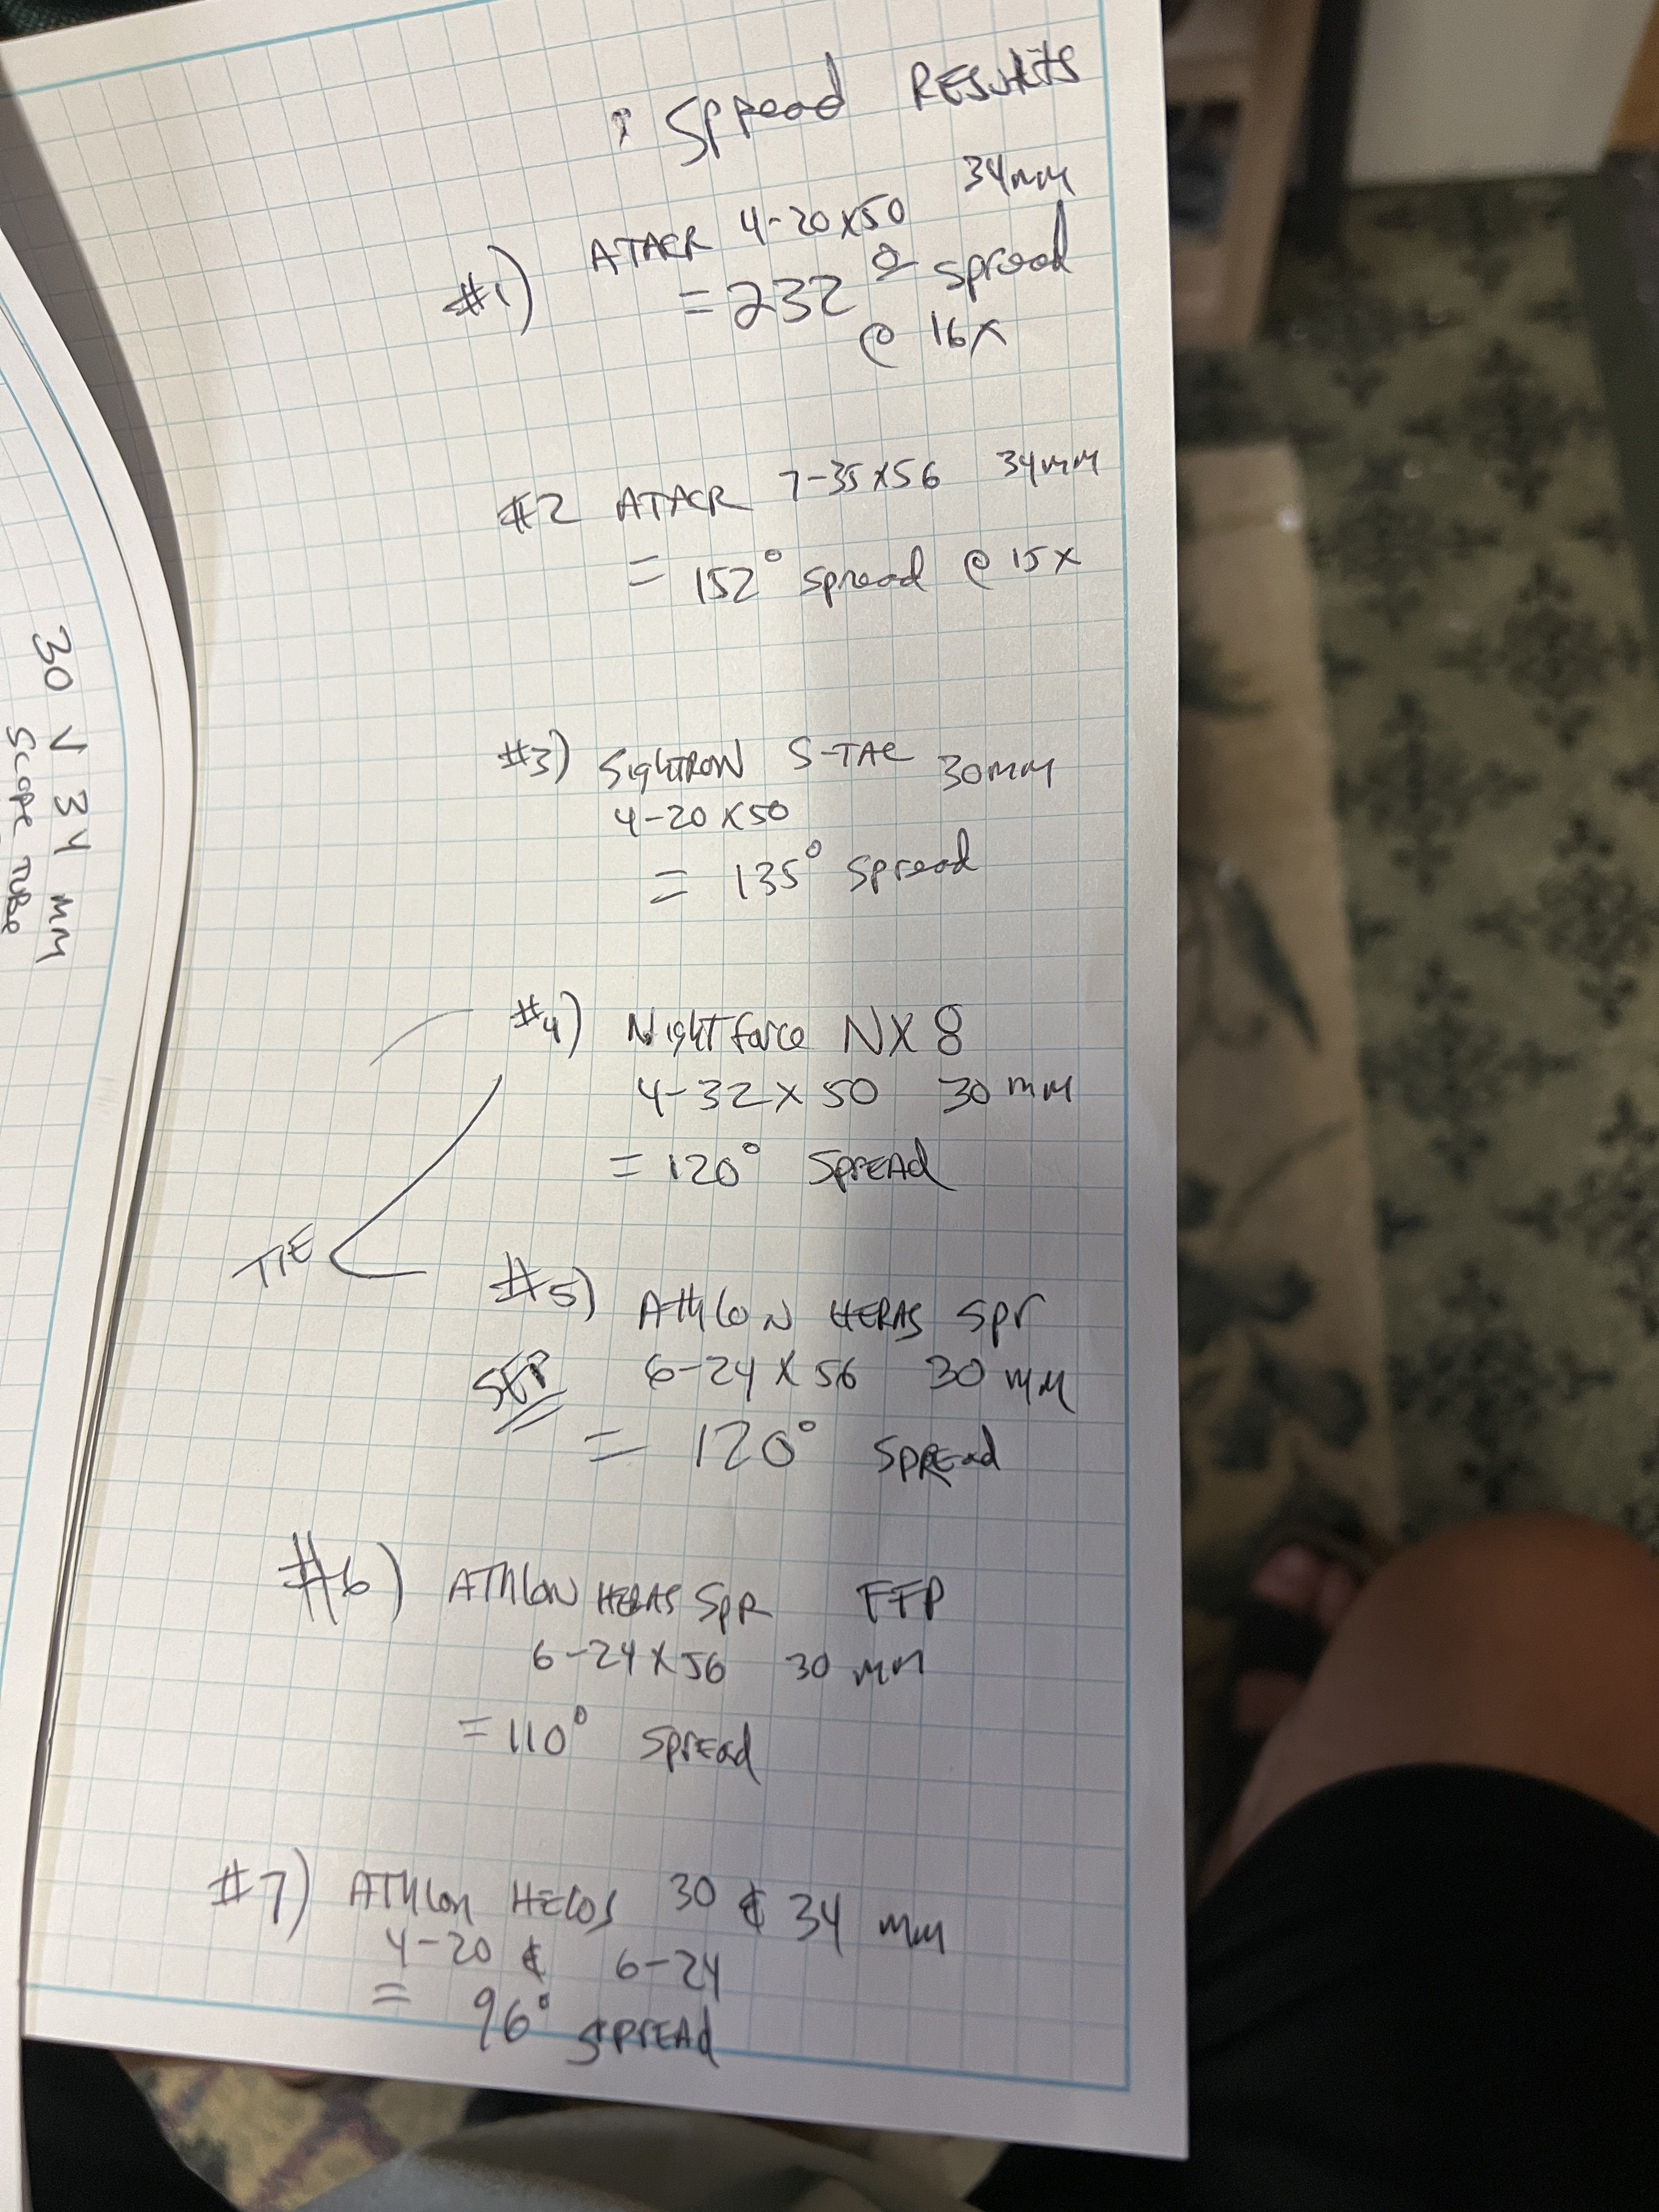 : Spread RESULTS
#1) ATACR 4-20x50 34mm
= 232° spread
@ 16x
#2 ATACR 7-35x56 34mm
= 152° spread @ 15x
#3) SightRON S-TAC 30mm
4-20x50
= 135° spread
#4) Nightforce NX8
4-32x50 30mm
= 120° SPrEAd
TIE
#5) AthloN HERAS spr
SFP 6-24x56 30mm
= 120° SPREad
#6) AThloN HERAS SpR FFP
6-24x56 30mm
= 110° sprEad
#7) AThlon HELOS 30 & 34 mm
4-20 & 6-24
= 96° SPrEAd
30 v 34 mm
Scope TUBE